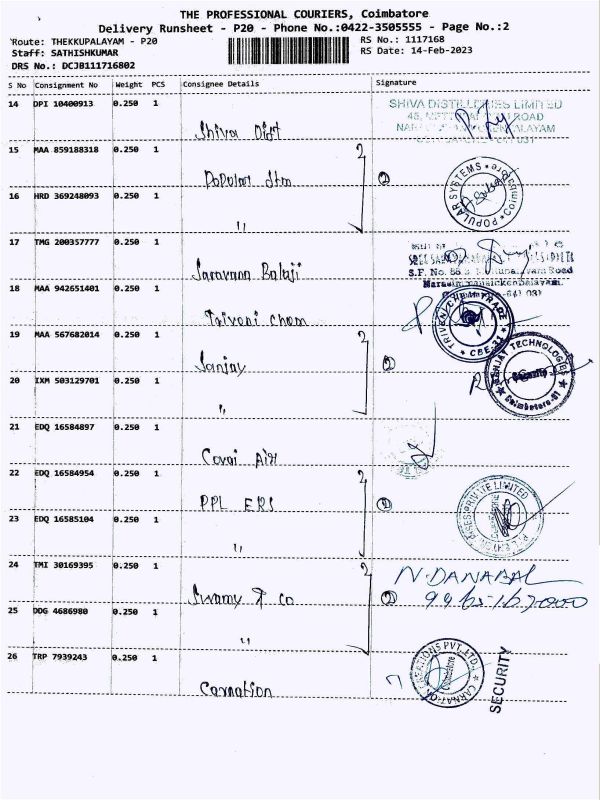 THE PROFESSIONAL COURIERS, Coimbatore
Delivery Runsheet - P20 - Phone No.:0422-3505555 - Page No.:2
Route: THEKKUPALAYAM - P20
RS No.: 1117168
Staff: SATHISHKUMAR
RS Date: 14-Feb-2023
DRS No.: DCJB111716802
S No Consignment No Weight PCS Consignee Details Signature
14 DPI 10400913 0.250 1
SHIVA DISTILLERIES LIMITED
Shiva Dist
15 MAA 859188318 0.250 1
Popular Stm 2
POPULAR SYSTEMS * Coimbatore *
16 HRD 369248093 0.250 1
"
17 TMG 200357777 0.250 1
Saravana Balaji
18 MAA 942651401 0.250 1
Triveni Chem
TRIVENI CHEM TRADE * CBE-31 *
19 MAA 567682014 0.250 1
Sanjay 2
TECHNOLOGIES * Coimbatore-31 *
Security
20 IXM 503129701 0.250 1
"
21 EDQ 16584897 0.250 1
Covai Air
22 EDQ 16584954 0.250 1
PPL ERS 2
PRIVATE LIMITED
23 EDQ 16585104 0.250 1
"
24 TMI 30169395 0.250 1
N. DANABAL
Swamy & co 2
25 DDG 4686980 0.250 1
"
26 TRP 7939243 0.250 1
Carnation
CARNATION CREATIONS PVT. LTD.
Coimbatore
SECURITY